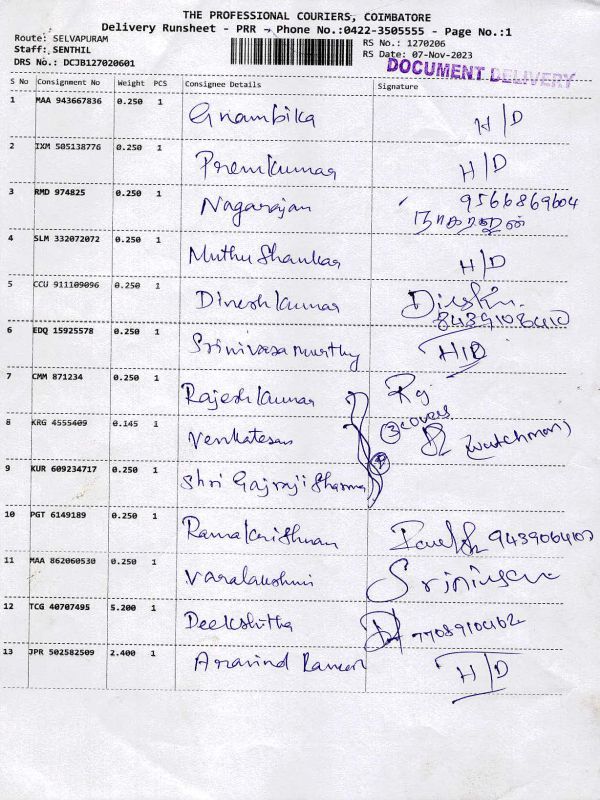 THE PROFESSIONAL COURIERS, COIMBATORE
Delivery Runsheet - PRR - Phone No.:0422-3505555 - Page No.:1
Route: SELVAPURAM
Staff: SENTHIL
DRS No.: DCJB127020601
RS No.: 1270206
RS Date: 07-Nov-2023
DOCUMENT DELIVERY
S No Consignment No Weight PCS Consignee Details Signature
1 MAA 943667836 0.250 1 Gnambika H/D
2 IXM 505138776 0.250 1 Premkumar H/D
3 RMD 974825 0.250 1 Nagarajan 9566869604
நாகராஜன்
4 SLM 332072072 0.250 1 Muthu Shankar H/D
5 CCU 911109096 0.250 1 Dinesh kumar
8439108410
6 EDQ 15925578 0.250 1 Srinivasa murthy H/D
7 CMM 871234 0.250 1 Rajesh kumar Rg
3 covers
8 KRG 4555409 0.145 1 Venkatesan (watchman)
9 KUR 609234717 0.250 1 Shri Gajraji Sharma
10 PGT 6149189 0.250 1 Ramakrishnan
11 MAA 862060530 0.250 1 Varalakshmi
12 TCG 40707495 5.200 1 Deekshitha 7708910462
13 JPR 502582509 2.400 1 Aravind H/D